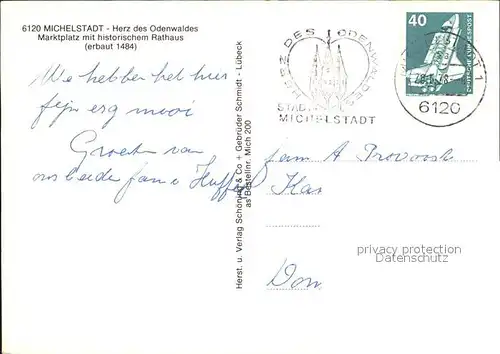 6120 MICHELSTADT - Herz des Odenwaldes
Marktplatz mit historischem Rathaus
(erbaut 1484)
We hebben het hier
fijn erg mooi
Groeten van
ons beide fam
Herst. u. Verlag Schöning & Co + Gebrüder Schmidt - Lübeck
as Bestellnr. Mich 200
HERZ DES ODENWALDES
STADT
MICHELSTADT
40
DEUTSCHE BUNDESPOST
6120
fam A Provoost
protected personal data
privacy protection